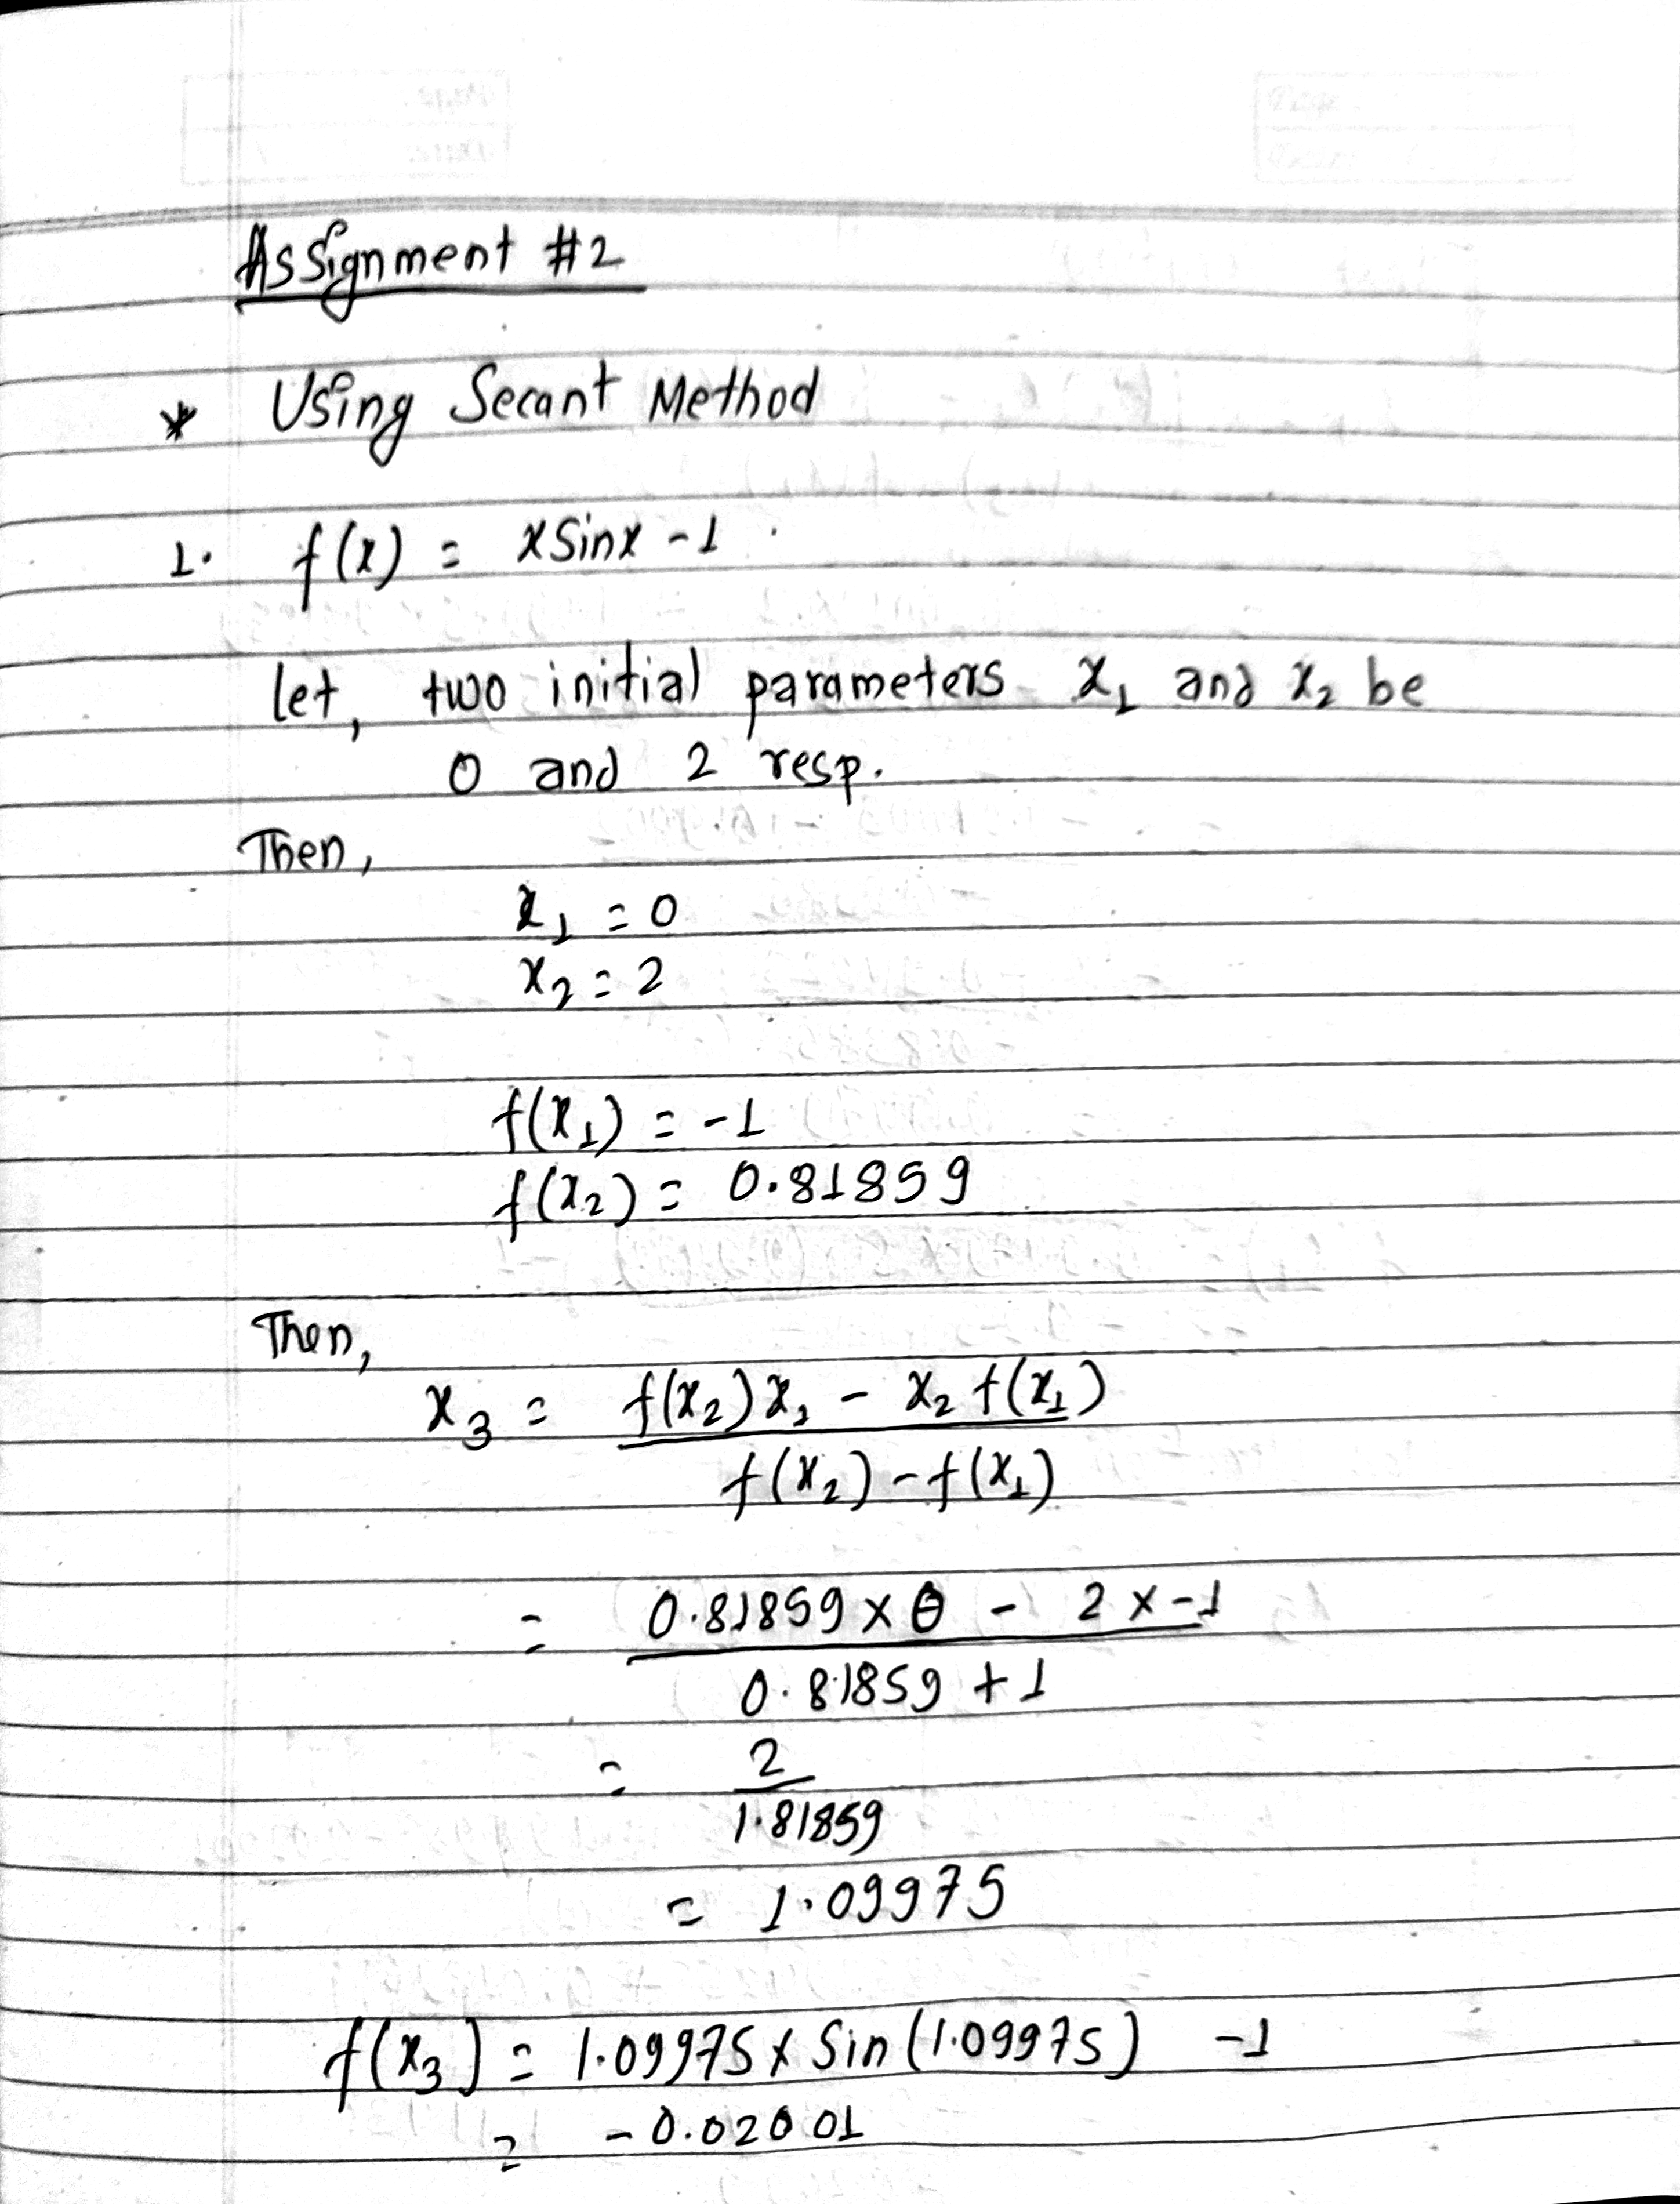 Assignment #2
* Using Secant Method
1. f(x) = xSinx - 1
let, two initial parameters x₁ and x₂ be
0 and 2 resp.
Then,
x₁ = 0
x₂ = 2
f(x₁) = -1
f(x₂) = 0.81859
Then,
x₃ = f(x₂)x₁ - x₂f(x₁)
f(x₂) - f(x₁)
= 0.81859 x 0 - 2 x -1
0.81859 + 1
= 2
1.81859
= 1.09975
f(x₃) = 1.09975 x Sin(1.09975) - 1
= -0.02001